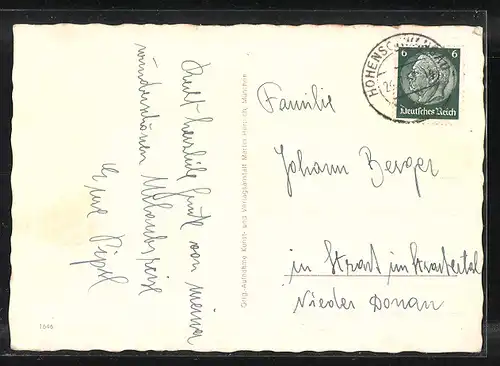 Recht herzliche Grüße von meiner
wunderschönen Urlaubsreise
Pipil
1646
Orig.-Aufnahme Kunst- und Verlagsanstalt Martin Herpich, München
HOHENSCHWANGAU
6 6
Deutsches Reich
Familie
Johann Berger
in Stratzing im Straßertal
Nieder Donau